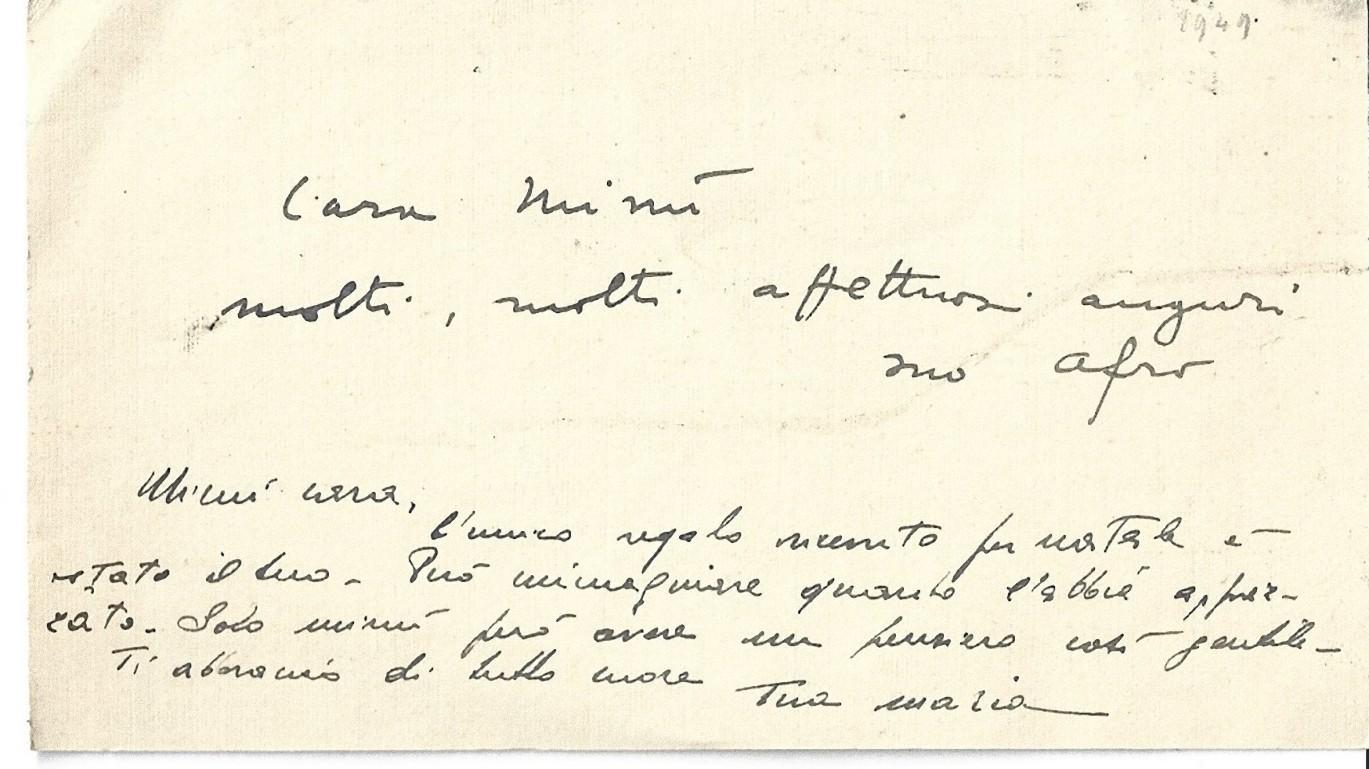 1949.
Cara Minù
molti, molti affettuosi auguri
suo Afro
Mimì cara,
l'unico regalo ricevuto per natale è
stato il tuo. Può immaginare quanto l'abbia apprez-
zato. Solo mimì può avere un pensiero così gentile.
Ti abbraccio di tutto cuore
Tua maria